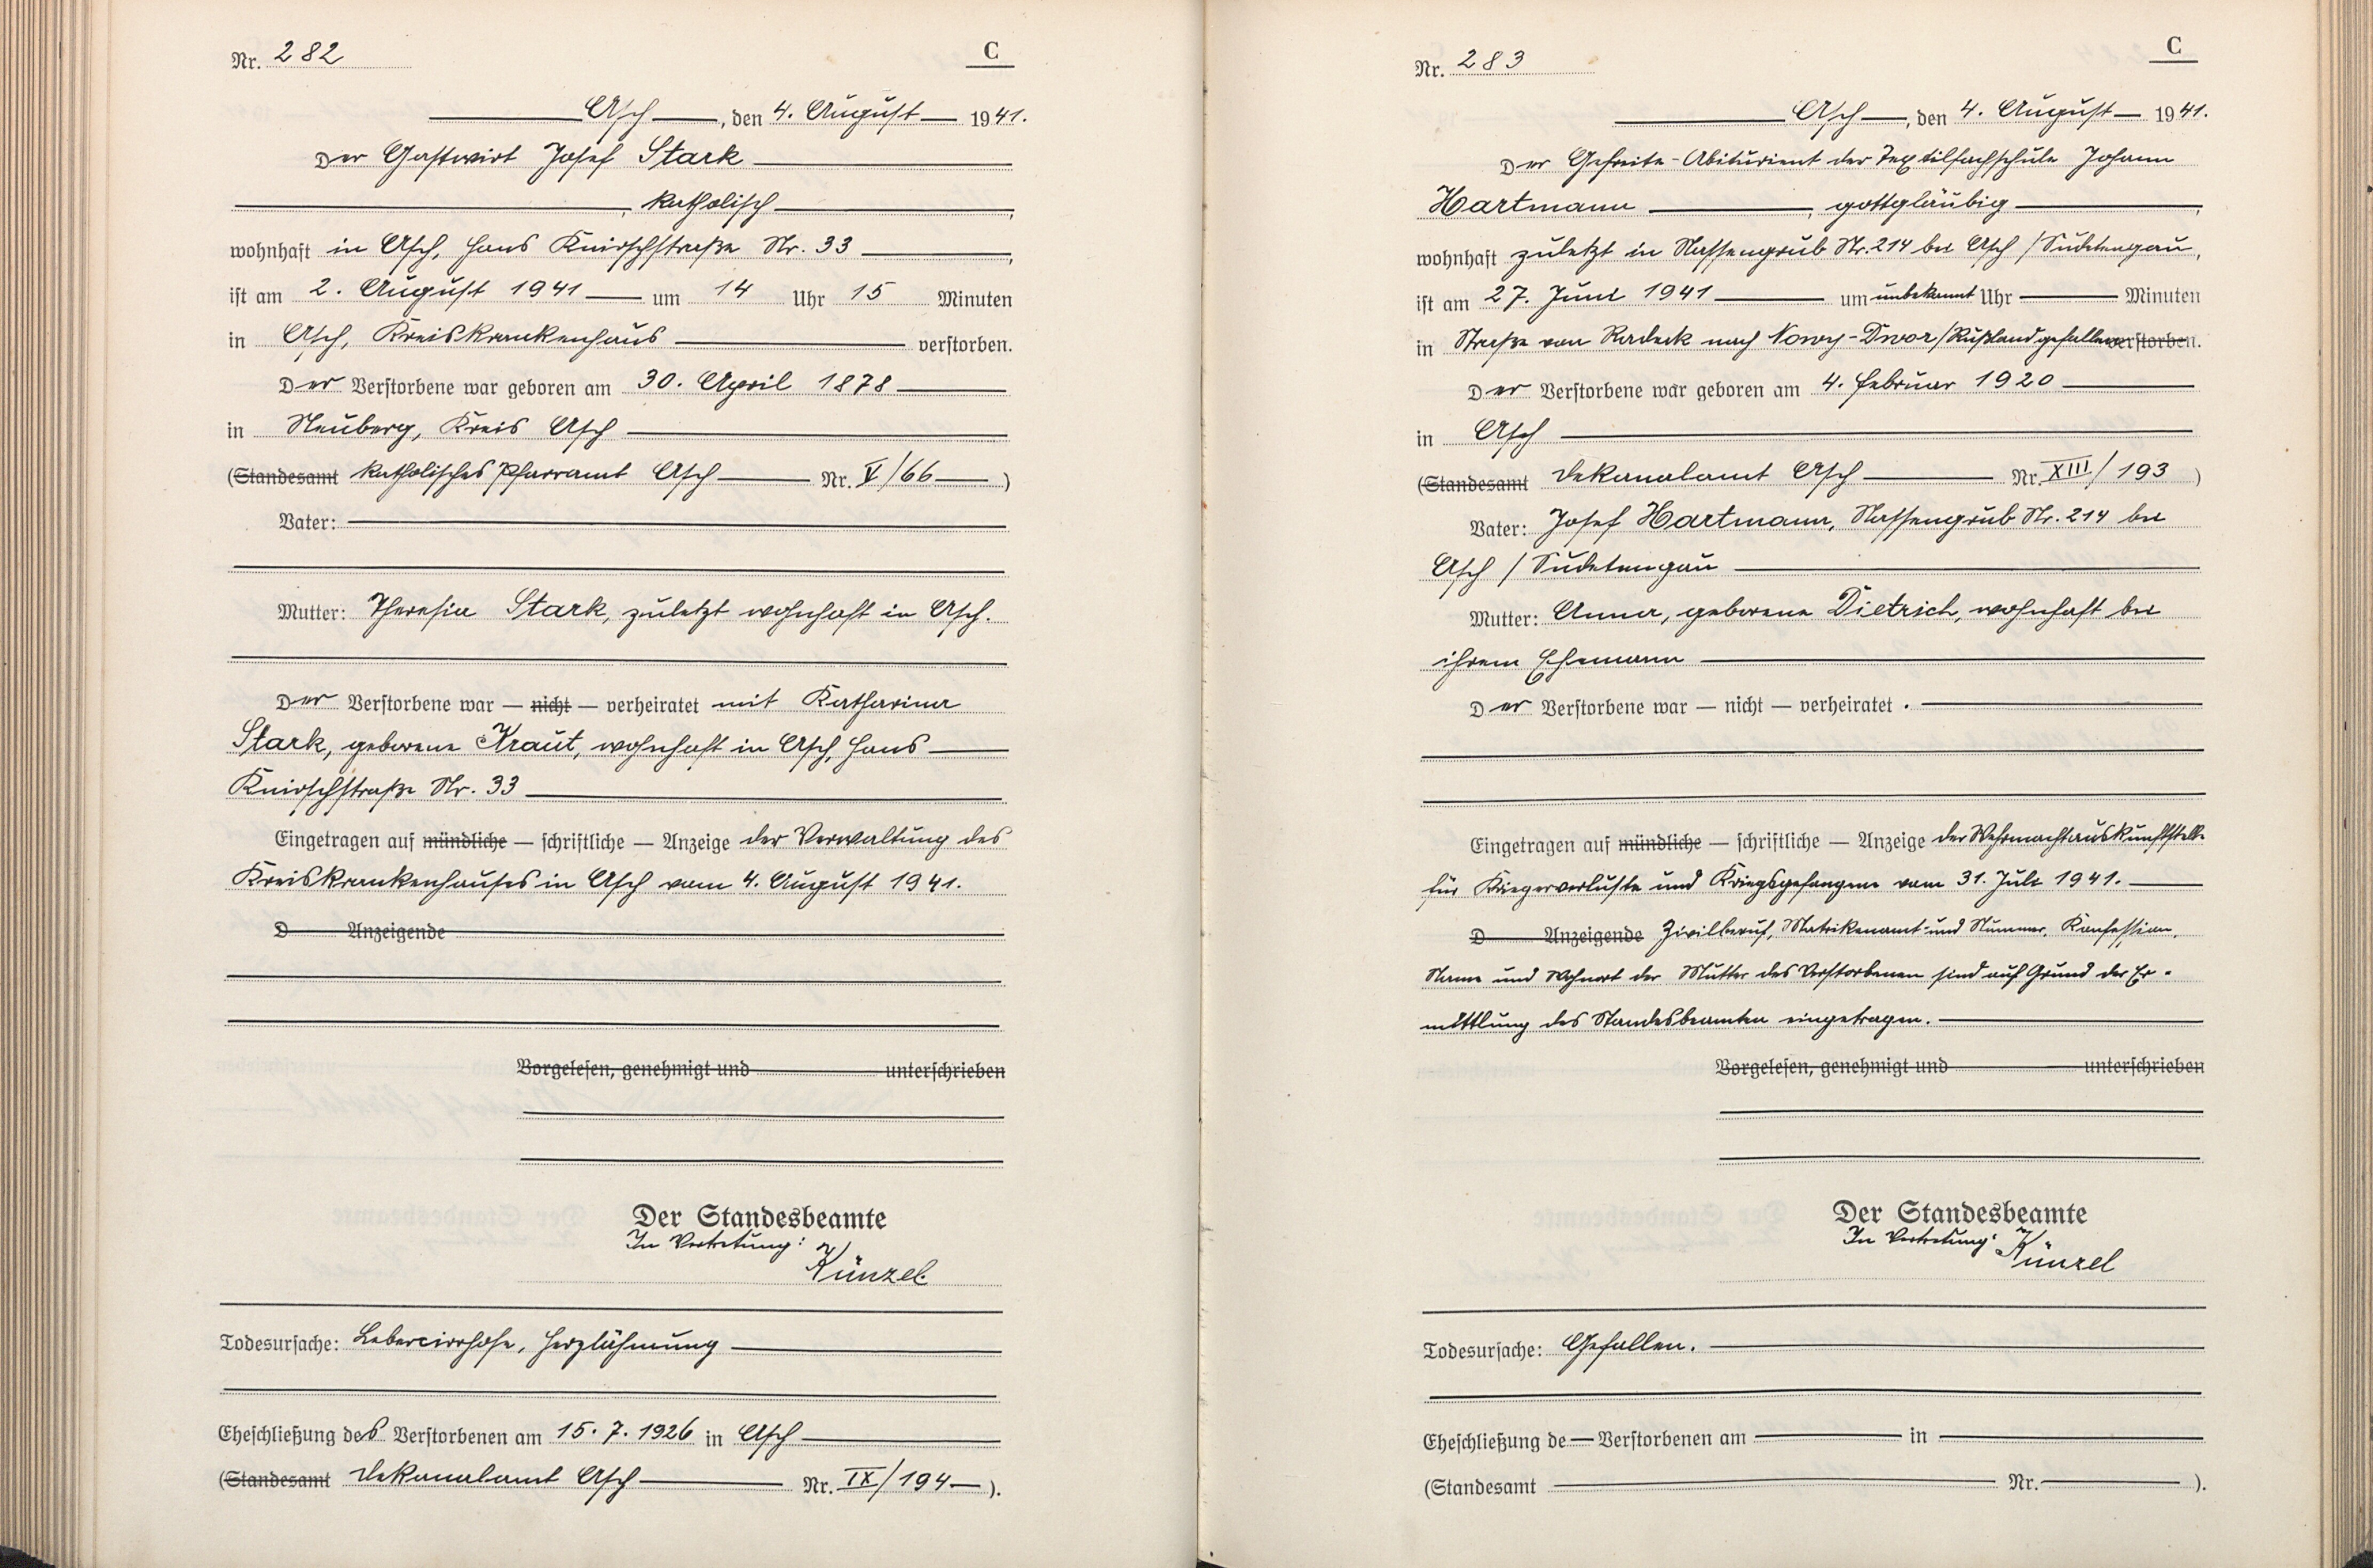 Nr. 282
C
Asch, den 4. August 1941.
Der Gastwirt Josef Stark
, katholisch,
wohnhaft in Asch, Hans Knirschstraße Nr. 33,
ist am 2. August 1941 um 14 Uhr 15 Minuten
in Asch, Kreiskrankenhaus verstorben.
Der Verstorbene war geboren am 30. April 1878
in Neuberg, Kreis Asch
(Standesamt katholisches Pfarramt Asch Nr. V/66)
Vater:
Mutter: Theresia Stark, zuletzt wohnhaft in Asch.
Der Verstorbene war — nicht — verheiratet mit Katharina
Stark, geborene Kraut, wohnhaft in Asch, Hans
Knirschstraße Nr. 33
Eingetragen auf mündliche — schriftliche — Anzeige der Verwaltung des
Kreiskrankenhauses in Asch vom 4. August 1941.
D Anzeigende
Vorgelesen, genehmigt und unterschrieben
Der Standesbeamte
In Vertretung:
Künzel.
Todesursache: Lebercirrhose, Herzlähmung
Eheschließung des Verstorbenen am 15. 7. 1926 in Asch
(Standesamt Dekanalamt Asch Nr. IX/194).
Nr. 283
C
Asch, den 4. August 1941.
Der Gefreite - Abiturient der Textilfachschule Johann
Hartmann, gottgläubig,
wohnhaft zuletzt in Nassengrub Nr. 214 bei Asch / Sudetengau,
ist am 27. Juni 1941 um unbekannt Uhr Minuten
in Straße von Radeck nach Nowy-Dwor/Rußland gefallen verstorben.
Der Verstorbene war geboren am 4. Februar 1920
in Asch
(Standesamt Dekanalamt Asch Nr. XIII/193)
Vater: Josef Hartmann, Nassengrub Nr. 214 bei
Asch / Sudetengau
Mutter: Anna, geborene Dietrich, wohnhaft bei
ihrem Ehemann
Der Verstorbene war — nicht — verheiratet.
Eingetragen auf mündliche — schriftliche — Anzeige der Wehrmachtauskunftstelle
für Kriegerverluste und Kriegsgefangene vom 31. Juli 1941.
D Anzeigende Zivilberuf, Matrikenamt- und Nummer, Konfession,
Name und Wohnort der Mutter des Verstorbenen sind auf Grund der Er-
mittlung des Standesbeamten eingetragen.
Vorgelesen, genehmigt und unterschrieben
Der Standesbeamte
In Vertretung:
Künzel
Todesursache: Gefallen.
Eheschließung de Verstorbenen am in
(Standesamt Nr. ).